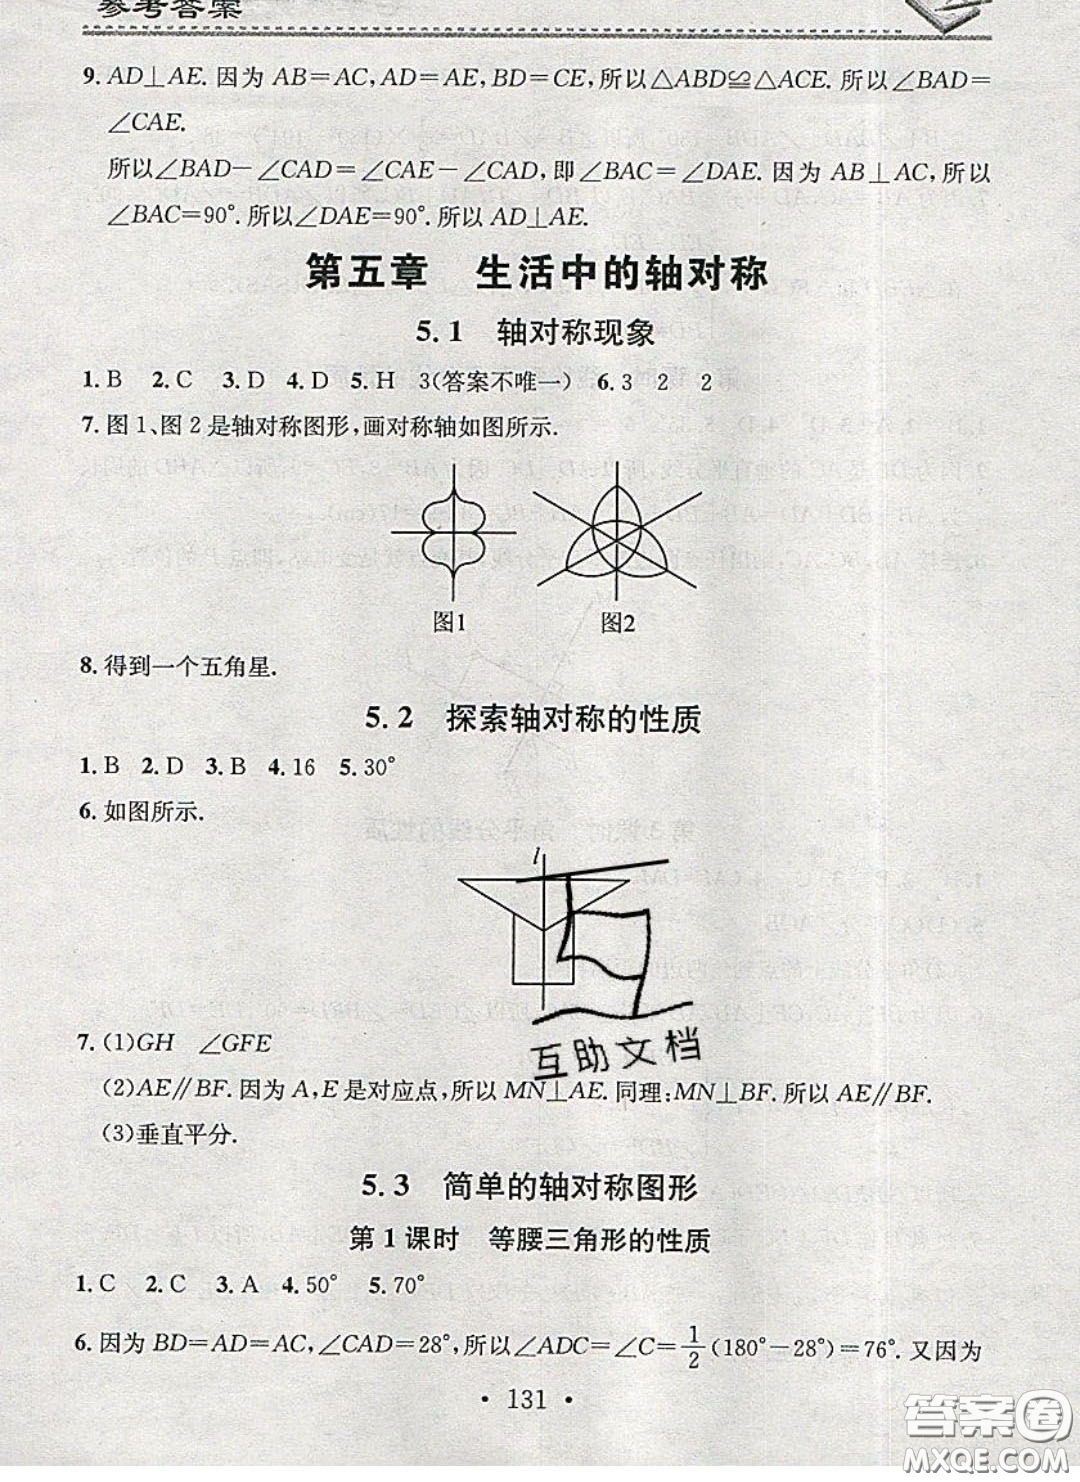 参考答案
9. AD⊥AE. 因为 AB=AC, AD=AE, BD=CE, 所以△ABD≌△ACE. 所以∠BAD=
∠CAE.
所以∠BAD-∠CAD=∠CAE-∠CAD, 即∠BAC=∠DAE. 因为 AB⊥AC, 所以
∠BAC=90°. 所以∠DAE=90°. 所以 AD⊥AE.
第五章 生活中的轴对称
5.1 轴对称现象
1. B 2. C 3. D 4. D 5. H 3(答案不唯一) 6. 3 2 2
7. 图1、图2是轴对称图形, 画对称轴如图所示.
图1 图2
8. 得到一个五角星.
5.2 探索轴对称的性质
1. B 2. D 3. B 4. 16 5. 30°
6. 如图所示.
l
互助文档
7. (1)GH ∠GFE
(2)AE∥BF. 因为 A, E 是对应点, 所以 MN⊥AE. 同理: MN⊥BF. 所以 AE∥BF.
(3)垂直平分.
5.3 简单的轴对称图形
第1课时 等腰三角形的性质
1. C 2. C 3. A 4. 50° 5. 70°
6. 因为 BD=AD=AC, ∠CAD=28°, 所以∠ADC=∠C=1/2(180°-28°)=76°. 又因为
· 131 ·
答案圈
MXQE.COM